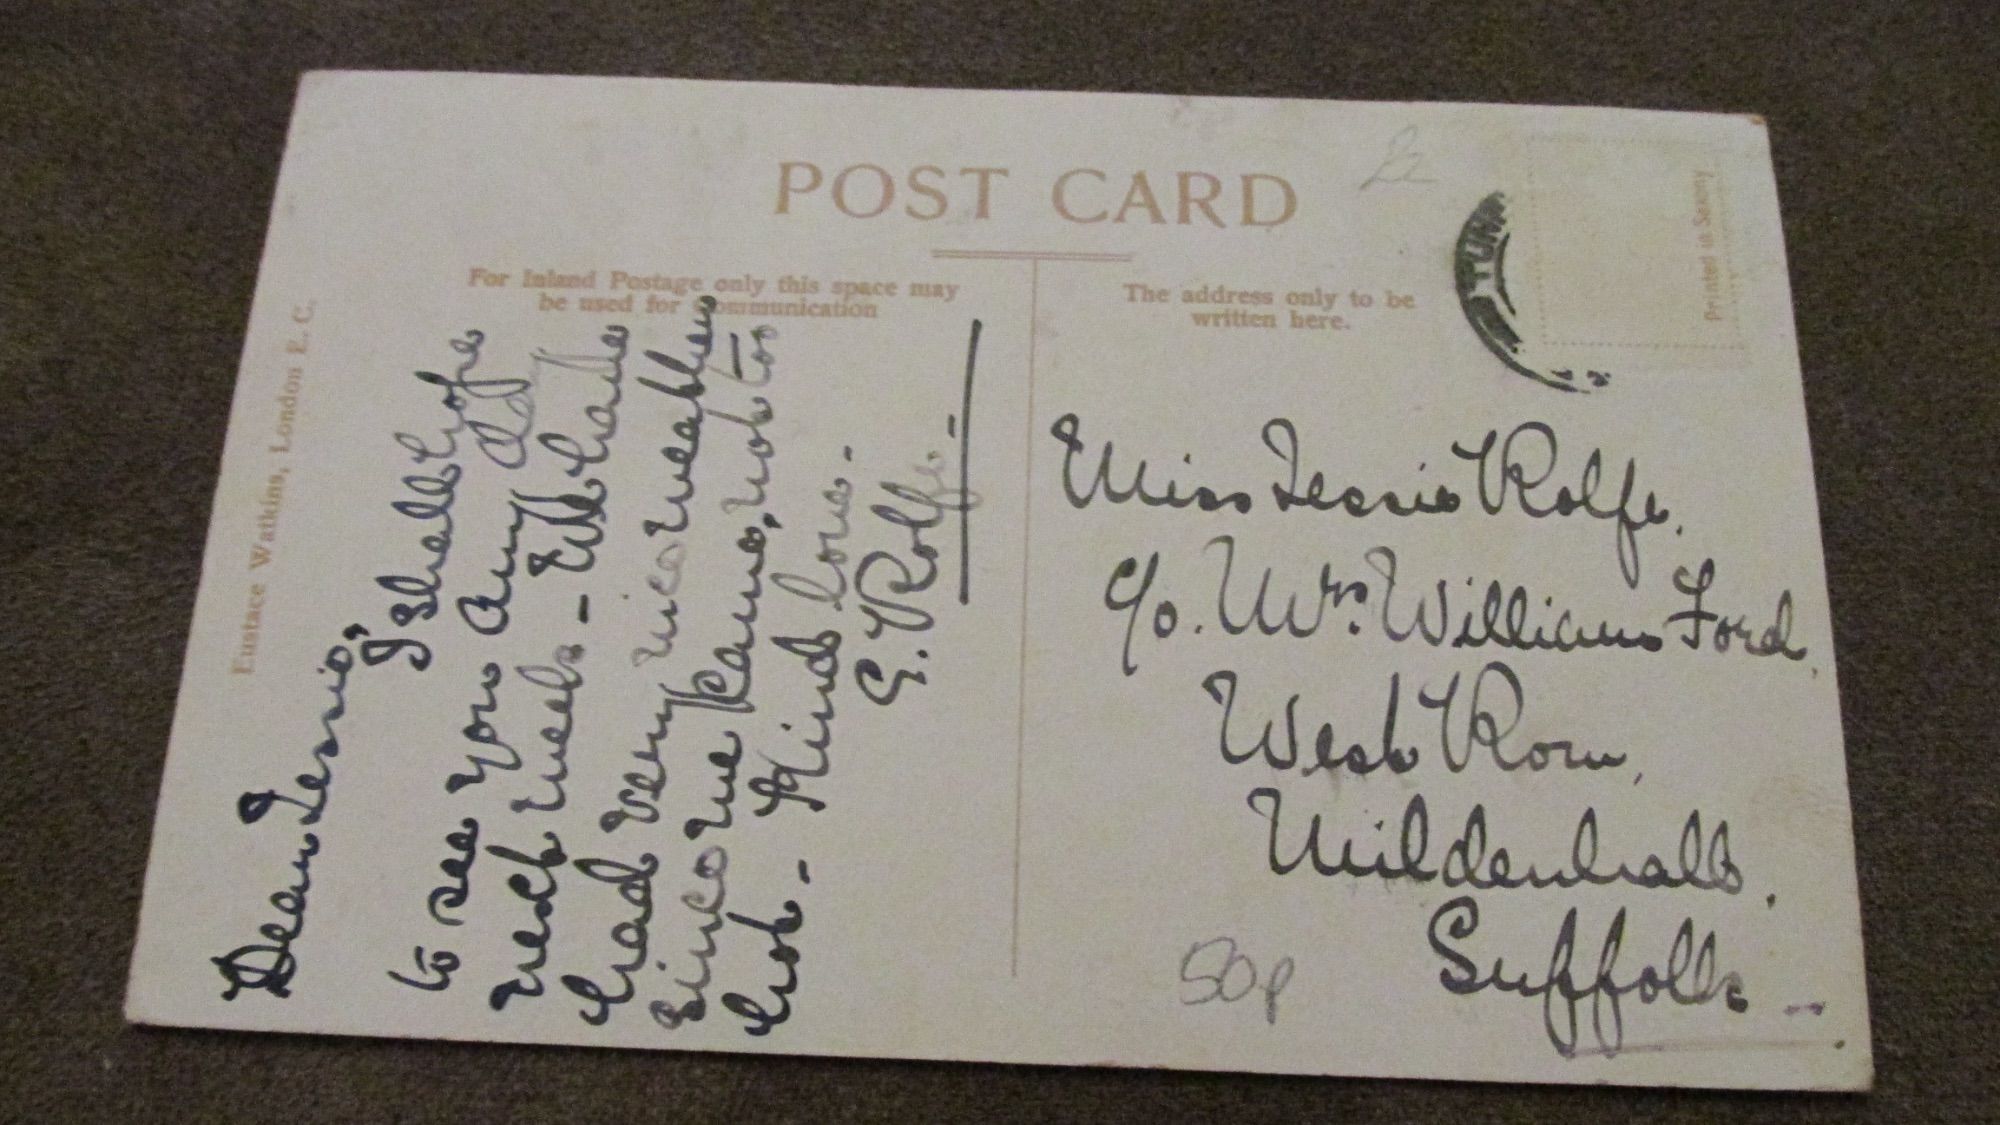 POST CARD
For Inland Postage only this space may
be used for Communication
The address only to be
written here.
Printed in Saxony
Eustace Watkins, London E. C.
TUNB
Dear Jessie,
I shall hope
to see you any day
next week - We have
had very nice weather
since we came, not too
hot - Kind love -
E. Rolfe -
Miss Jessie Rolfe.
c/o. Mrs. William Ford
West Row,
Mildenhall.
Suffolk -
50p